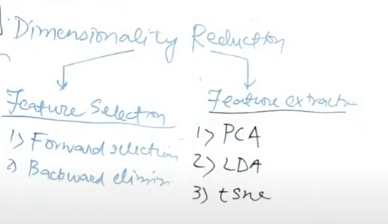 Dimensionality Reduction
Feature Selection
1) Forward selection
2) Backward elimin
Feature extractn
1) PCA
2) LDA
3) tsne